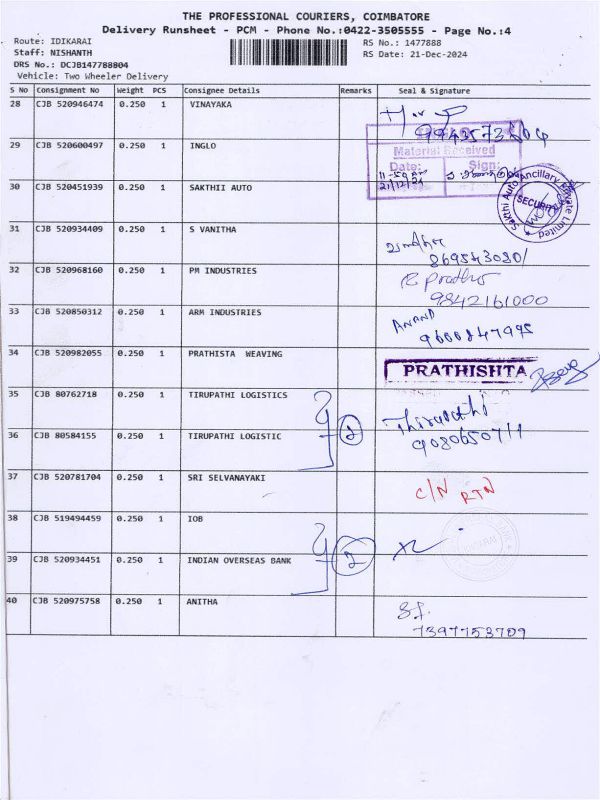 THE PROFESSIONAL COURIERS, COIMBATORE
Delivery Runsheet - PCM - Phone No.:0422-3505555 - Page No.:4
Route: IDIKARAI
RS No.: 1477888
Staff: NISHANTH
RS Date: 21-Dec-2024
DRS No.: DCJB147788804
Vehicle: Two Wheeler Delivery
S No Consignment No Weight PCS Consignee Details Remarks Seal & Signature
28 CJB 520946474 0.250 1 VINAYAKA
29 CJB 520600497 0.250 1 INGLO
Material Received
Date: Sign:
21/12/24
30 CJB 520451939 0.250 1 SAKTHII AUTO
Sakthi Auto Ancillary Private Limited
SECURITY
31 CJB 520934409 0.250 1 S VANITHA
32 CJB 520968160 0.250 1 PM INDUSTRIES
9842161000
33 CJB 520850312 0.250 1 ARM INDUSTRIES ANAND
9600847995
34 CJB 520982055 0.250 1 PRATHISTA WEAVING PRATHISHTA
35 CJB 80762718 0.250 1 TIRUPATHI LOGISTICS
2
36 CJB 80584155 0.250 1 TIRUPATHI LOGISTIC
9080650711
37 CJB 520781704 0.250 1 SRI SELVANAYAKI C/N RTN
38 CJB 519494459 0.250 1 IOB
2
39 CJB 520934451 0.250 1 INDIAN OVERSEAS BANK
40 CJB 520975758 0.250 1 ANITHA
7397753709